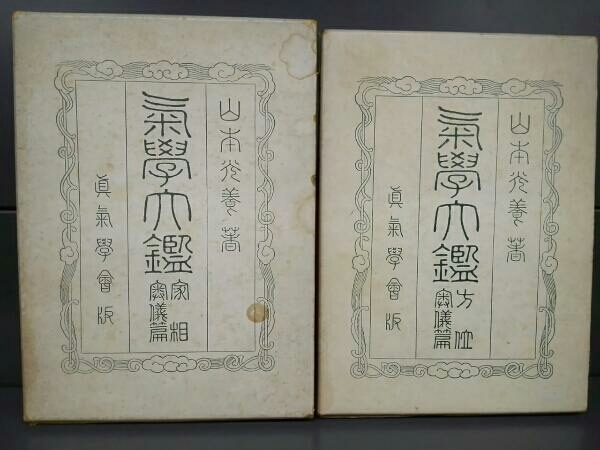 山本光養著
氣學大鑑
家相
奧儀篇
眞氣學會版
山本光養著
氣學大鑑
方位
奧儀篇
眞氣學會版